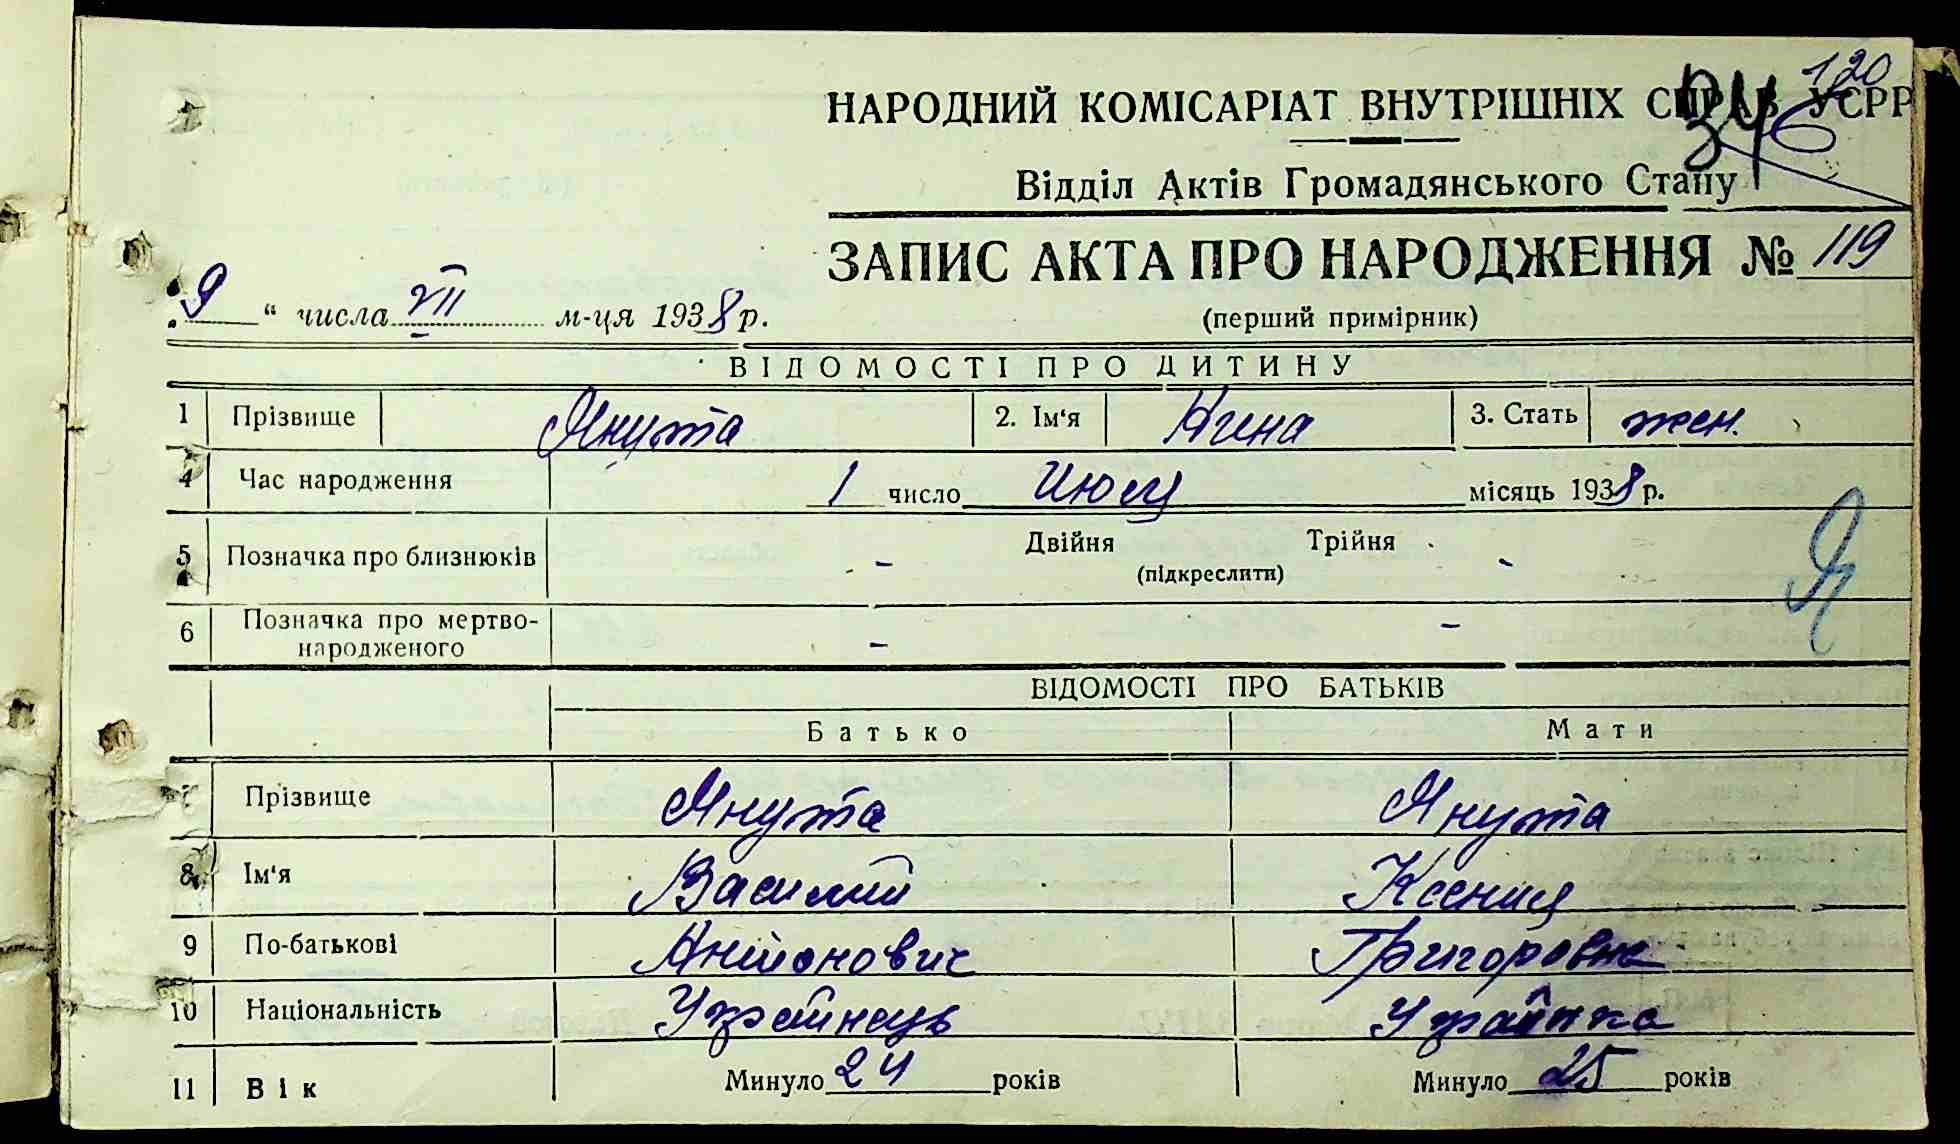 120
НАРОДНИЙ КОМІСАРІАТ ВНУТРІШНІХ СПРАВ УСРР
Відділ Актів Громадянського Стану
ЗАПИС АКТА ПРО НАРОДЖЕННЯ № 119
„ 9 “ числа VII м-ця 1938 р.
(перший примірник)
ВІДОМОСТІ ПРО ДИТИНУ
1 Прізвище Янута 2. Ім‘я Нина 3. Стать жен.
4 Час народження 1 число Июля місяць 1938 р.
5 Позначка про близнюків - Двійня Трійня -
(підкреслити)
6 Позначка про мертво-
народженого - -
ВІДОМОСТІ ПРО БАТЬКІВ
Батько Мати
7 Прізвище Янута Янута
8 Ім‘я Василий Ксения
9 По-батькові Антонович Григоровна
10 Національність Українець Українка
11 Вік Минуло 24 років Минуло 25 років
Я